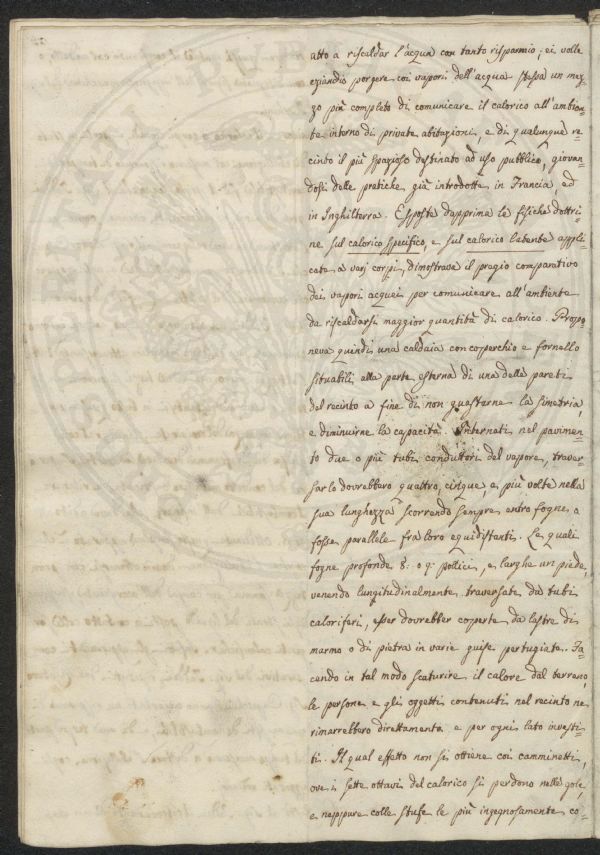 atto a riscaldar l'acqua con tanto risparmio, ei volle
eziandio porgere coi vapori dell'acqua stessa un mez-
zo più completo di comunicare il calorico all'ambien-
te interno di private abitazioni, e di qualunque re-
cinto il più spazioso destinato ad uso pubblico, giovan-
dosi delle pratiche già introdotte in Francia, ed
in Inghilterra. Esposte dapprima le fisiche dottri-
ne sul calorico specifico, e sul calorico latente appli-
cate a varj corpi, dimostrava il pregio comparativo
dei vapori acquei per comunicare all'ambiente
da riscaldarsi maggior quantità di calorico. Propo-
neva quindi una caldaia con coperchio e fornello
situabili alla parte esterna di una delle pareti
del recinto a fine di non guastarne la simetria,
e diminuirne la capacità. Internati nel pavimen-
to due o più tubi conduttori del vapore, traver-
sarlo dovrebbero quattro, cinque, e più volte nella
sua lunghezza scorrendo sempre entro fogne, o
fosse parallele fra loro equidistanti. Le quali
fogne profonde 8. o 9. pollici, e larghe un piede,
venendo lungitudinalmente traversate da tubi
caloriferi, esser dovrebber coperte da lastre di
marmo o di pietra in varie guise pertugiate. Fa-
cendo in tal modo scaturire il calore dal terreno,
le persone e gli oggetti contenuti nel recinto ne
rimarrebbero direttamente e per ogni lato investi-
ti. Il qual effetto non si ottiene coi camminetti,
ove i sette ottavi del calorico si perdono nelle gole,
e neppure colle stufe le più ingegnosamente co-